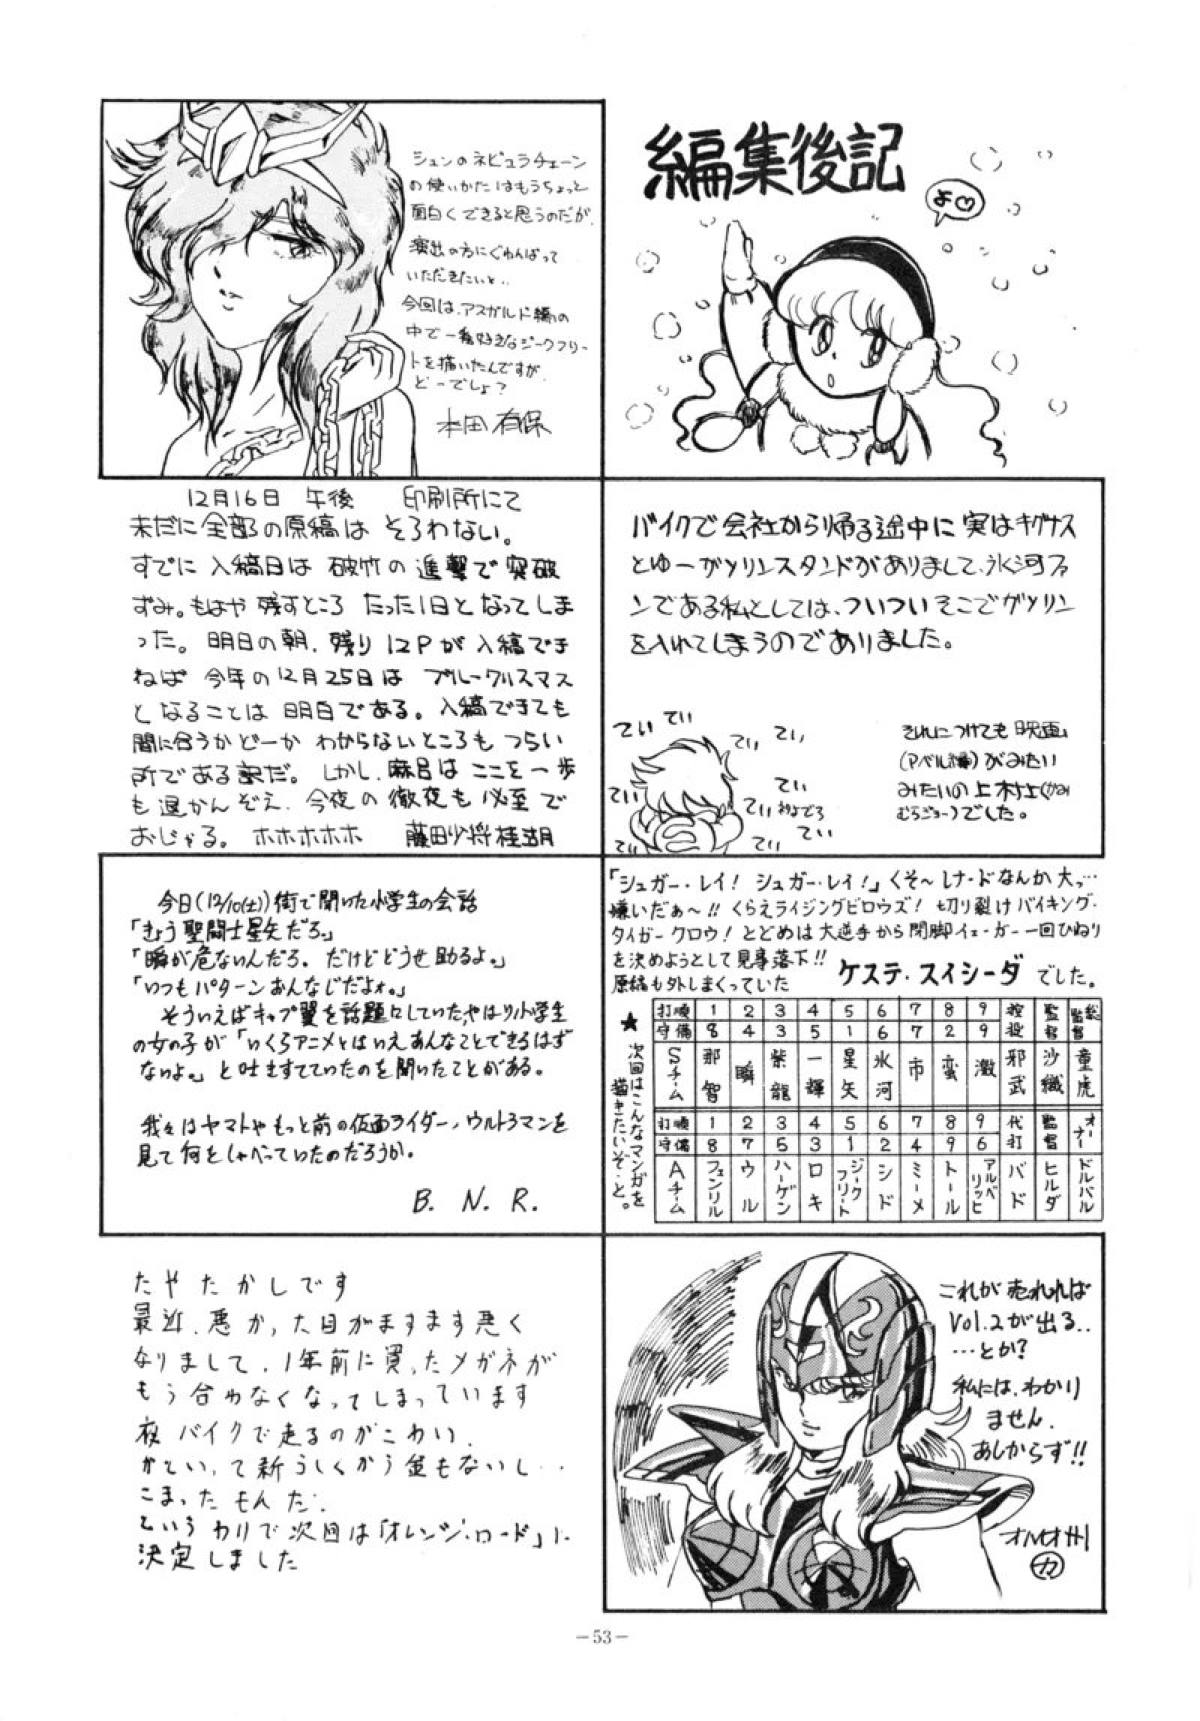 編集後記
よ♡
シュンのネビュラチェーン
の使いかたはもうちょっと
面白くできると思うのだが、
演出の方にぐわんばって
いただきたいと‥
今回は、アスガルド編の
中で一番好きなジークフリー
トを描いたんですが
どーでしょ？
本田有保
バイクで会社から帰る途中に実はキグナス
とゆーガソリンスタンドがありまして、氷河ファ
ンである私としては、ついついそこでガソリン
を入れてしまうのでありました。
てい てい てい てい
てい てい てい
てい てい てい
それにつけても映画
(アベル編)がみたい
みたいの上村上(かみ
むらジョー)でした。
12月16日 午後 印刷所にて
未だに全部の原稿は そろわない。
すでに 入稿日は 破竹の進撃で突破
ずみ。もはや 残すところ たった1日となってしま
った。明日の朝、残り 12Pが入稿でき
ねば 今年の12月25日は ブルークリスマス
となることは 明白である。入稿できても
間に合うかどーか わからないところも つらい
所である訳だ。しかし、麻呂は ここを一歩
も退かんぞえ、今夜の徹夜も必至で
おじゃる。ホホホホホ 藤田少将桂湖
「シュガー・レイ！ シュガー・レイ！」くそ〜レナードなんか大っ…
嫌いだぁ〜!! くらえライジングビロウズ！ 切り裂けバイキング・
タイガークロウ！ とどめは大逆手から閉脚イェーガー一回ひねり
を決めようとして見事落下!!
原稿も外しまくっていた ケステ・スイシーダ でした。
★次回はこんなマンガを
描きたいぞ、と。
打順 1 2 3 4 5 6 7 8 9 控 監督 総監督
守備 8 4 3 5 1 6 7 2 9 投
Sチーム 那智 瞬 紫龍 一輝 星矢 氷河 市 蛮 激 邪武 沙織 童虎
打順 1 2 3 4 5 6 7 8 9 代打 監督 オーナー
守備 8 7 5 3 1 2 4 9 6
Aチーム フェンリル ウル ハーゲン ロキ ジークフリート シド ミーメ トール アルベリッヒ バド ヒルダ ドルバル
今日(12/10(土))街で聞いた小学生の会話
「きょう聖闘士星矢だろ。」
「瞬が危ないんだろ。だけどどうせ助るよ。」
「いつもパターンおんなじだよォ。」
そういえばキャプ翼を話題にしていた、やはり小学生
の女の子が「いくらアニメとはいえあんなことできるはず
ないよ。」と吐きすてていたのを聞いたことがある。
我々はヤマトやもっと前の仮面ライダー、ウルトラマンを
見て何をしゃべっていたのだろうか。
B. N. R.
たやたかしです
最近、悪かった目がますます悪く
なりまして、1年前に買ったメガネが
もう合わなくなってしまっています
夜バイクで走るのがこわい、
かといって新らしくかう金もないし…
こまったもんだ、
というわりで次回は「オレンジ・ロード」に
決定しました
これが売れれば
Vol.2が出る‥
…とか？
私には、わかり
ません、
あしからず!!
カ
－53－